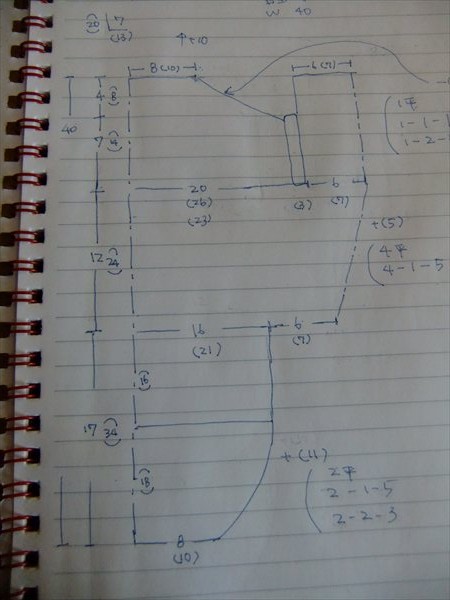 (20) 7
(13)
↑+10
W 40
8 (10)
6 (7)
4 (8)
40
1平
1-1-1
1-2-
7
20
(26)
(23)
(3)
6
(7)
+(5)
4平
4-1-5
12 (24)
16
(21)
6
(7)
(16)
17 (34)
+(11)
2平
2-1-5
2-2-3
(18)
8
(10)